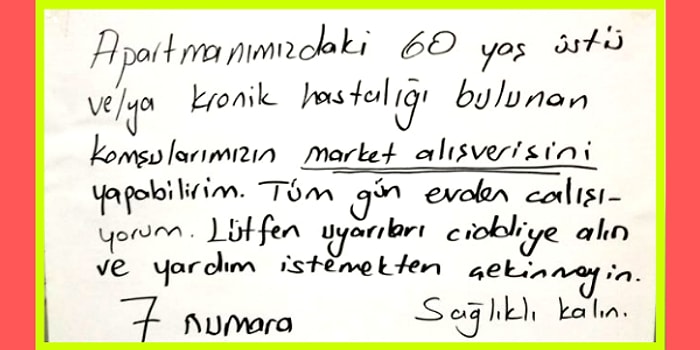 Apartmanımızdaki 60 yaş üstü
ve/ya kronik hastalığı bulunan
komşularımızın market alışverişini
yapabilirim. Tüm gün evden çalışı-
yorum. Lütfen uyarıları ciddiye alın
ve yardım istemekten çekinmeyin.
7 numara Sağlıklı kalın.